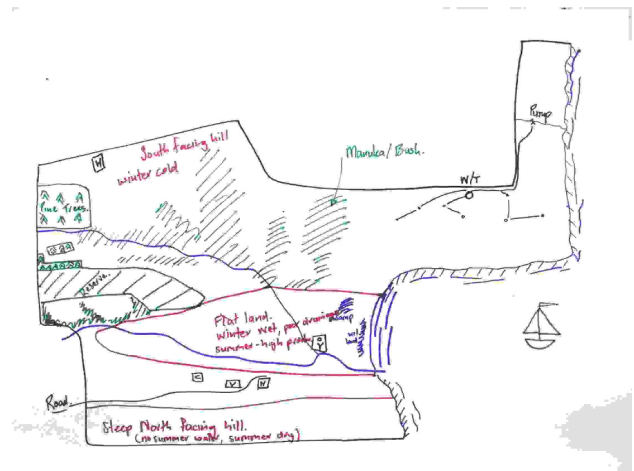 Pump
South Facing hill
winter cold
Manuka/Bush.
W/T
H
Pine Trees.
Reserve.
Flat land.
winter wet, poor drainage
summer-high prod
swamp
wet
land
Y
C
V
H
Road.
Steep North Facing hill.
(no summer water, summer dry)